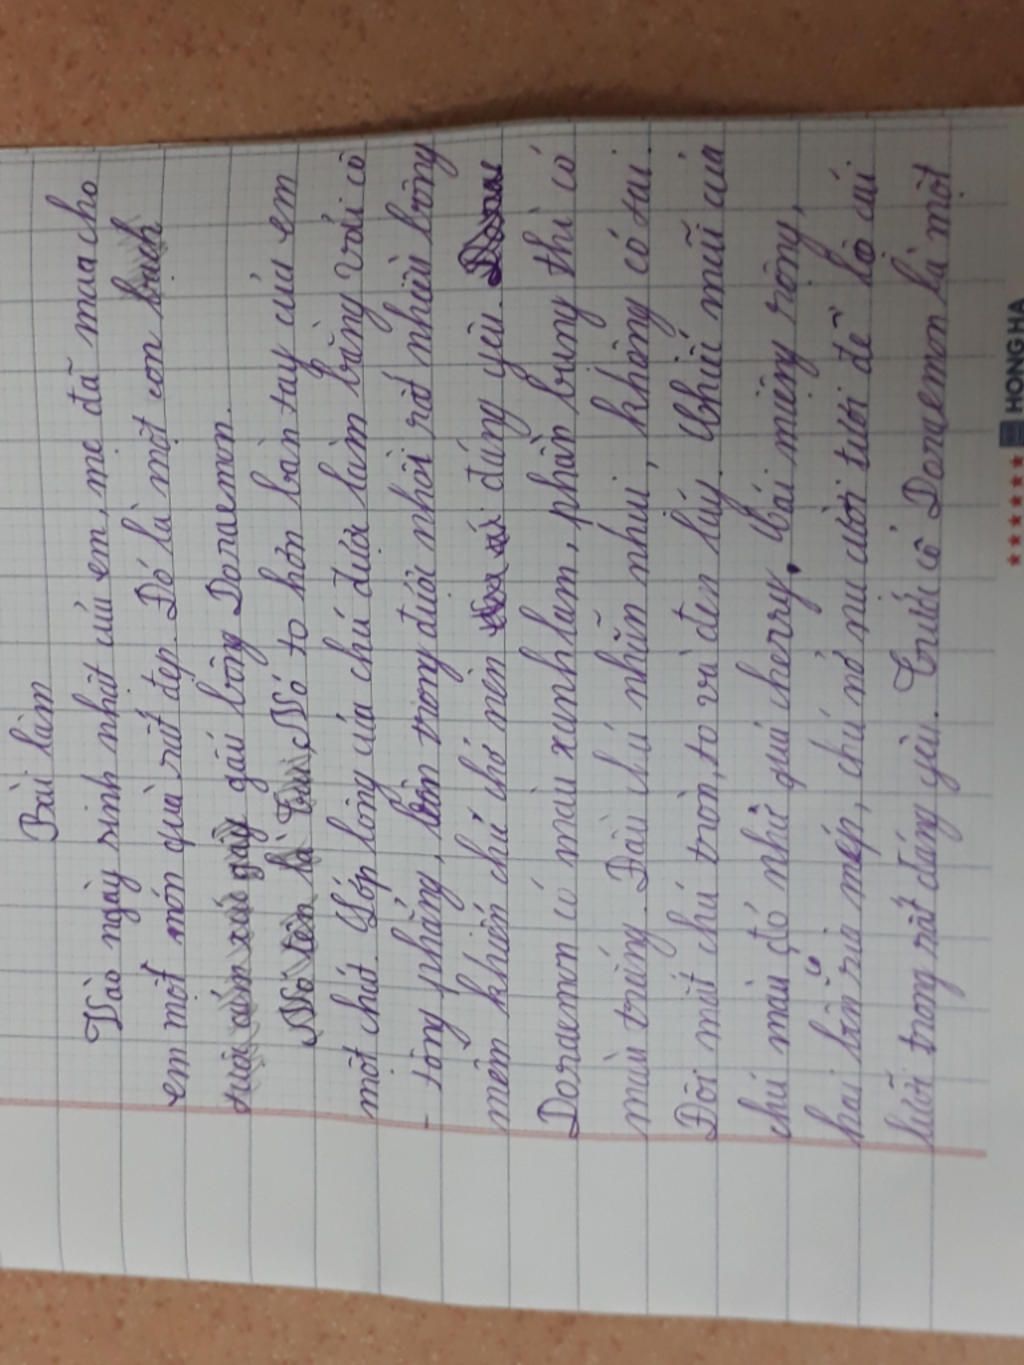 Bài làm
Vào ngày sinh nhật của em, mẹ đã mua cho
em một món quà rất đẹp. Đó là một con
gấu bông Doraemon.
Nó to hơn bàn tay của em
một chút. Lớp lông của chú được làm bằng vải cô
- tông phẳng, bên trong được nhồi rất nhiều bông
mềm khiến chú chở nên đáng yêu.
Doraemon có màu xanh lam, phần bụng thì có
màu trắng. Đầu chú nhẵn nhụi, không có tai.
Đôi mắt chú tròn, to và đen láy. Chiếc mũi của
chú màu đỏ như quả cherry. Cái miệng rộng,
hai bên có ria mép, chú nở nụ cười tươi để lộ cái
lưỡi trong rất đáng yêu. Trước cổ Doraemon là một
HONG HA